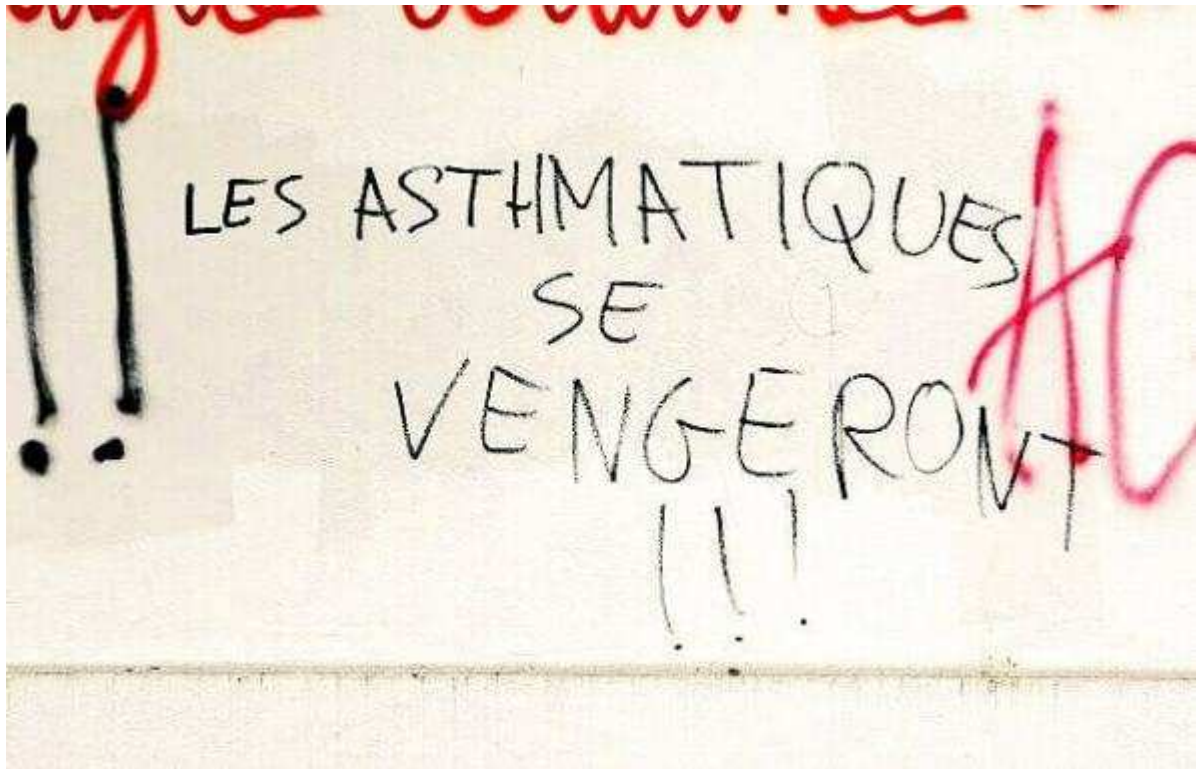 !!
LES ASTHMATIQUES
SE
VENGERONT
!!!